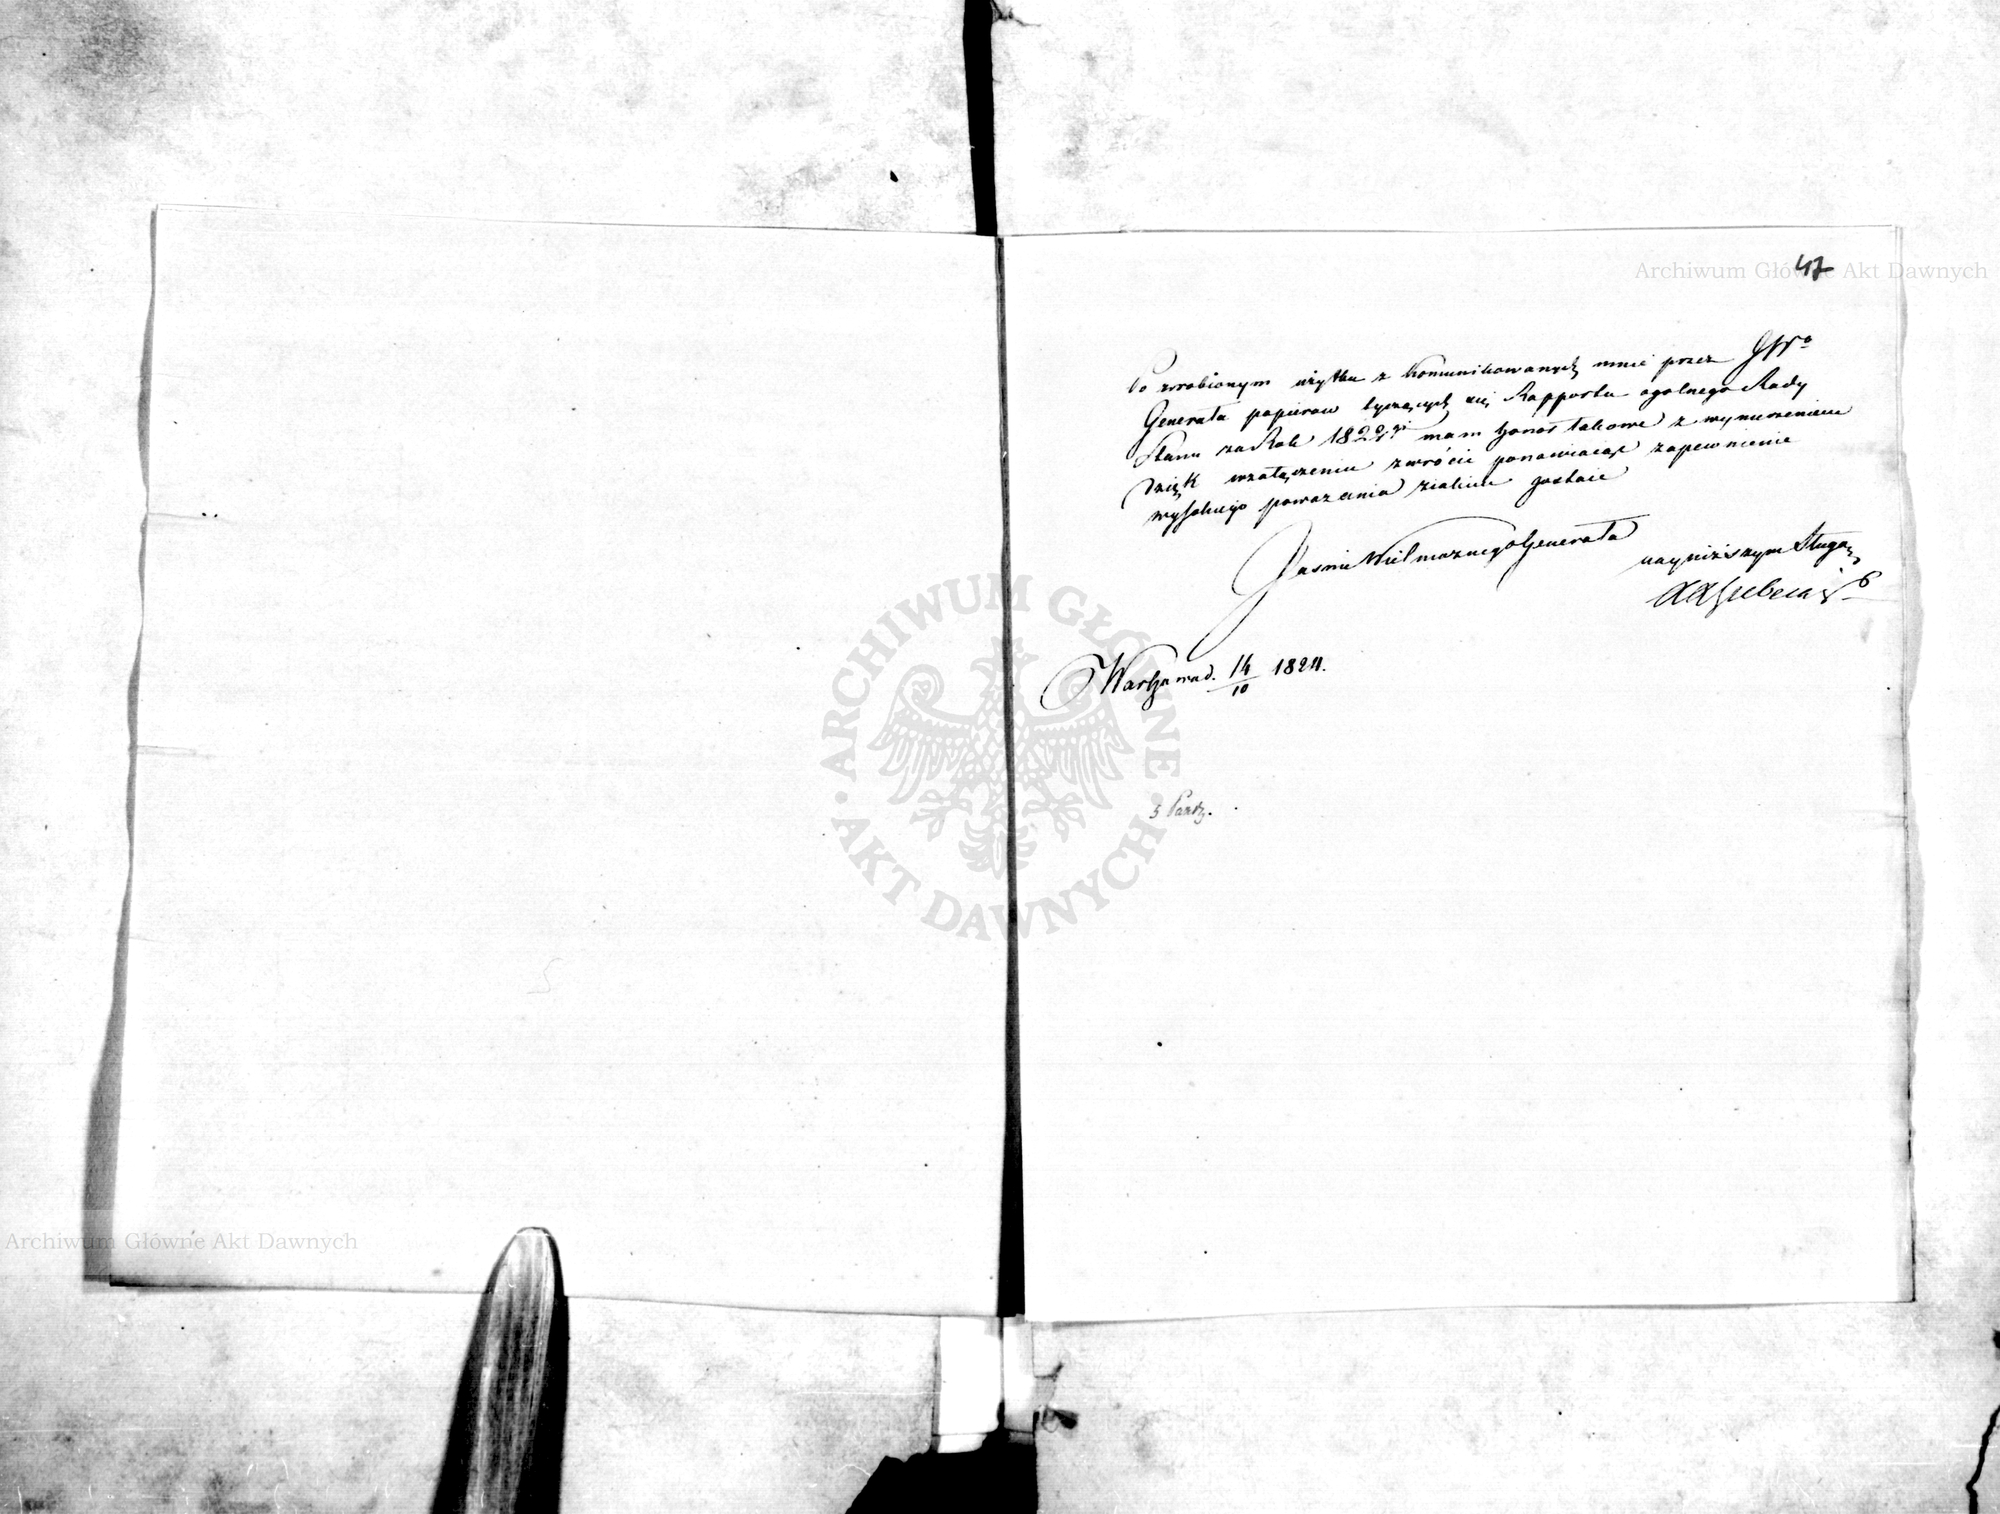 Archiwum Główne Akt Dawnych
47
Po zrobionym użytku z komunikowanych mnie przez JWo
Generała papierow tyczących się Rapportu ogolnego Rady
Stanu za Rok 1822 mam honor takowe z wynurzeniem
Dzięk w załączeniu zwrócić ponawiaiąc zapewnienie
wysokiego poważania z iakiem zostaię
Jasnie Wielmoznego Generała
nayniższym Sługą
Warszawa d. 14/10 1824.
ARCHIWUM GŁÓWNE
· AKT DAWNYCH ·
Archiwum Główne Akt Dawnych